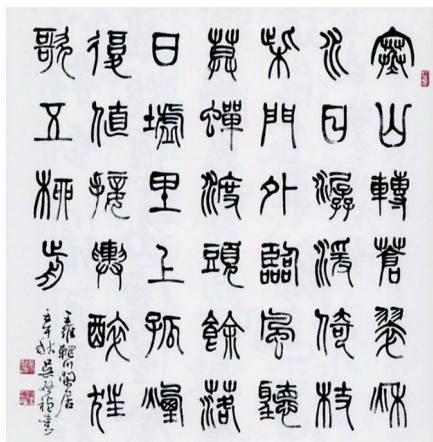 寒山轉蒼翠秋
水日潺湲倚杖
柴門外臨風聽
莫蟬渡頭餘落
日墟里上孤煙
復值接輿醉狂
歌五柳前
王維輞川閒居
午秋吳書